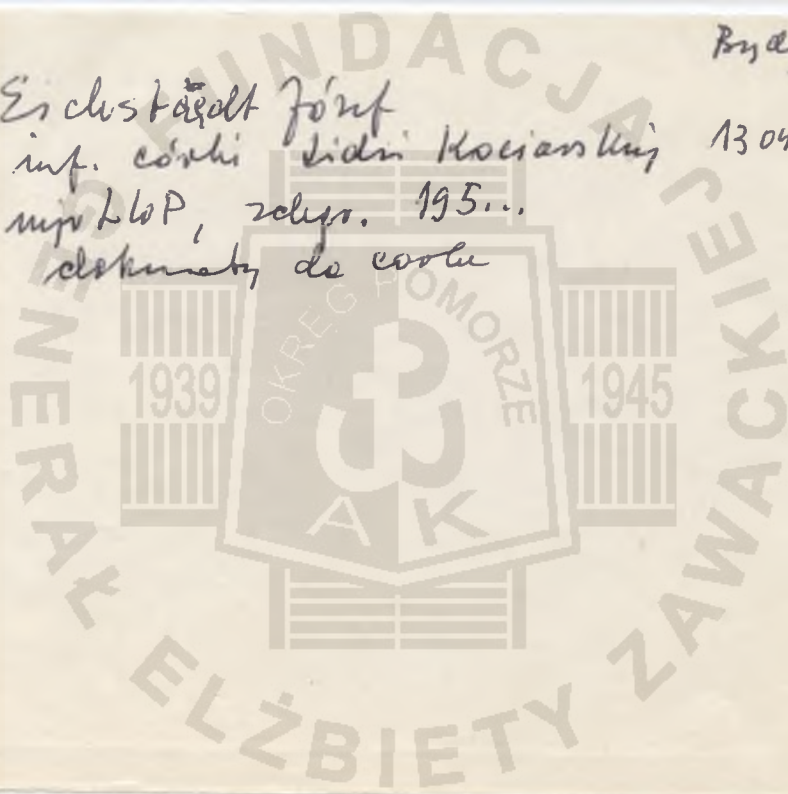 Byd
Eichstädt Józef
inf. córki Lidii Kociańskiej 13 04
mjr LWP, 195...
dokumenty do córki
FUNDACJA GENERAŁ ELŻBIETY ZAWACKIEJ
OKRĘG POMORZE
1939 1945
AK